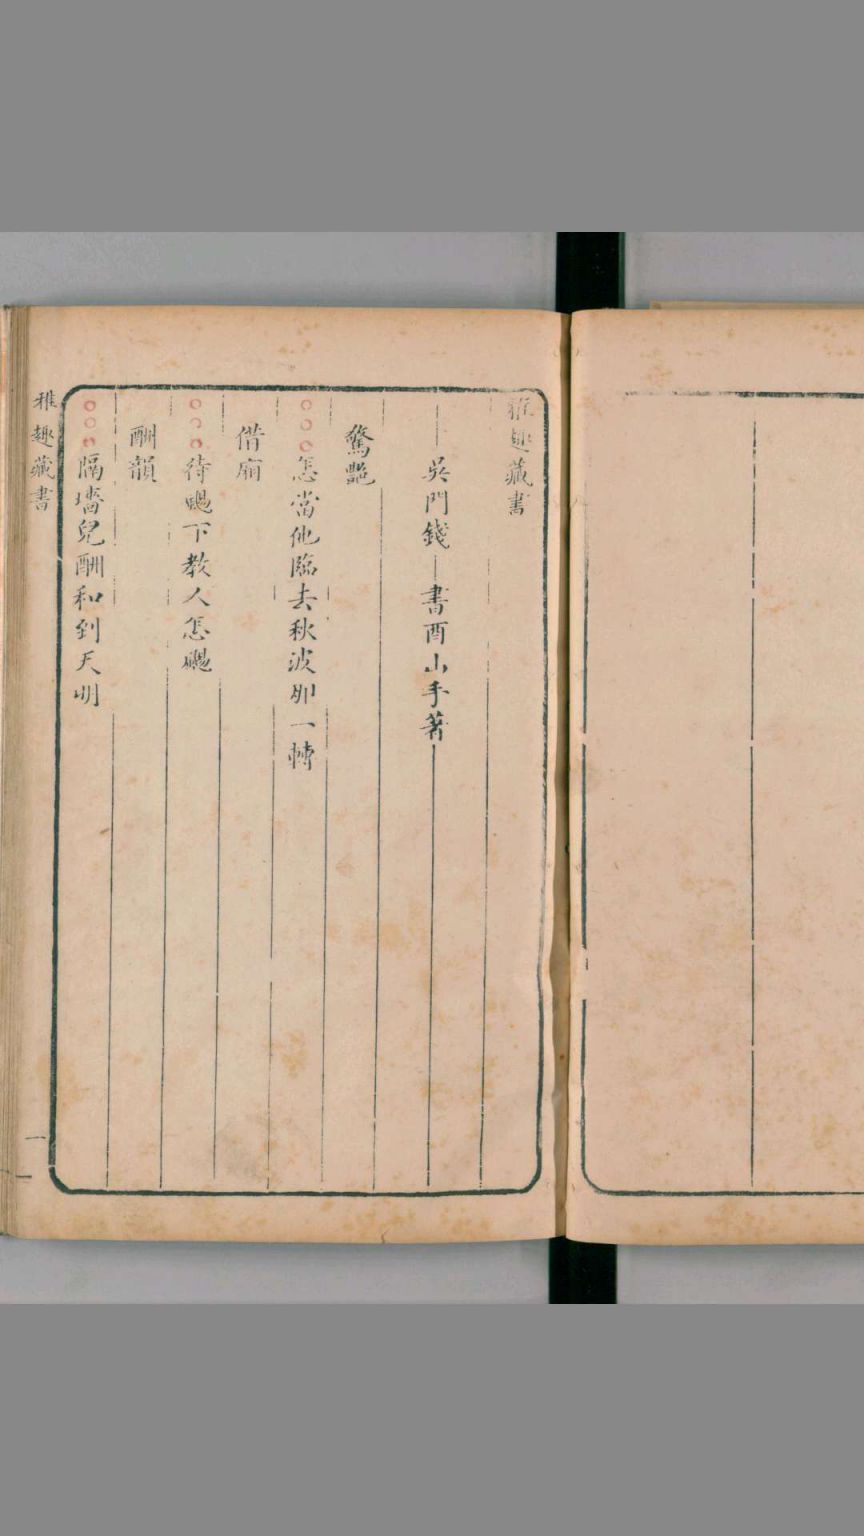 雅趣藏書
吳門錢書酉山手著
驚艷
○○○怎當他臨去秋波那一轉
借廂
○○○待颺下教人怎颺
酬韻
○○○隔墻兒酬和到天明
雅趣藏書
一